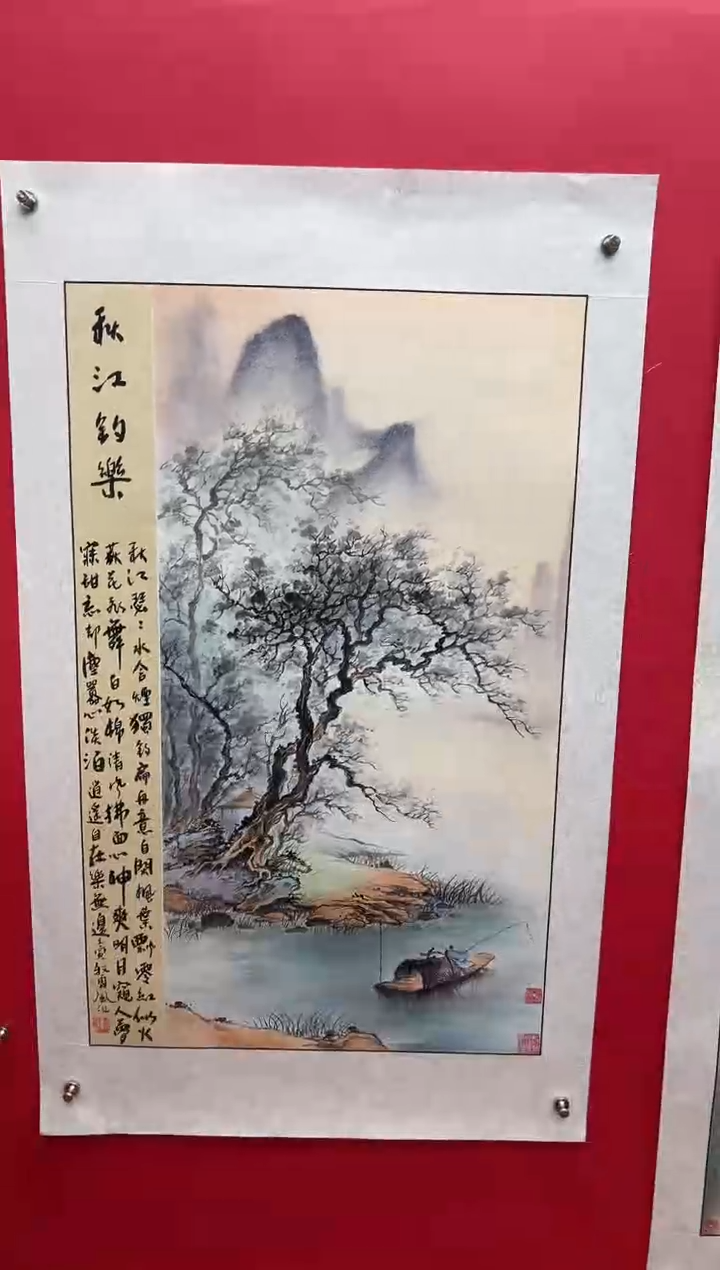 秋江釣樂
秋江瑟瑟水含煙獨釣扁舟意自閑楓葉飄零紅似火
荻花飛舞白如棉清風拂面心神爽明月窺人夢
寐甜忘却塵囂心淡泊逍遥自在樂無邊